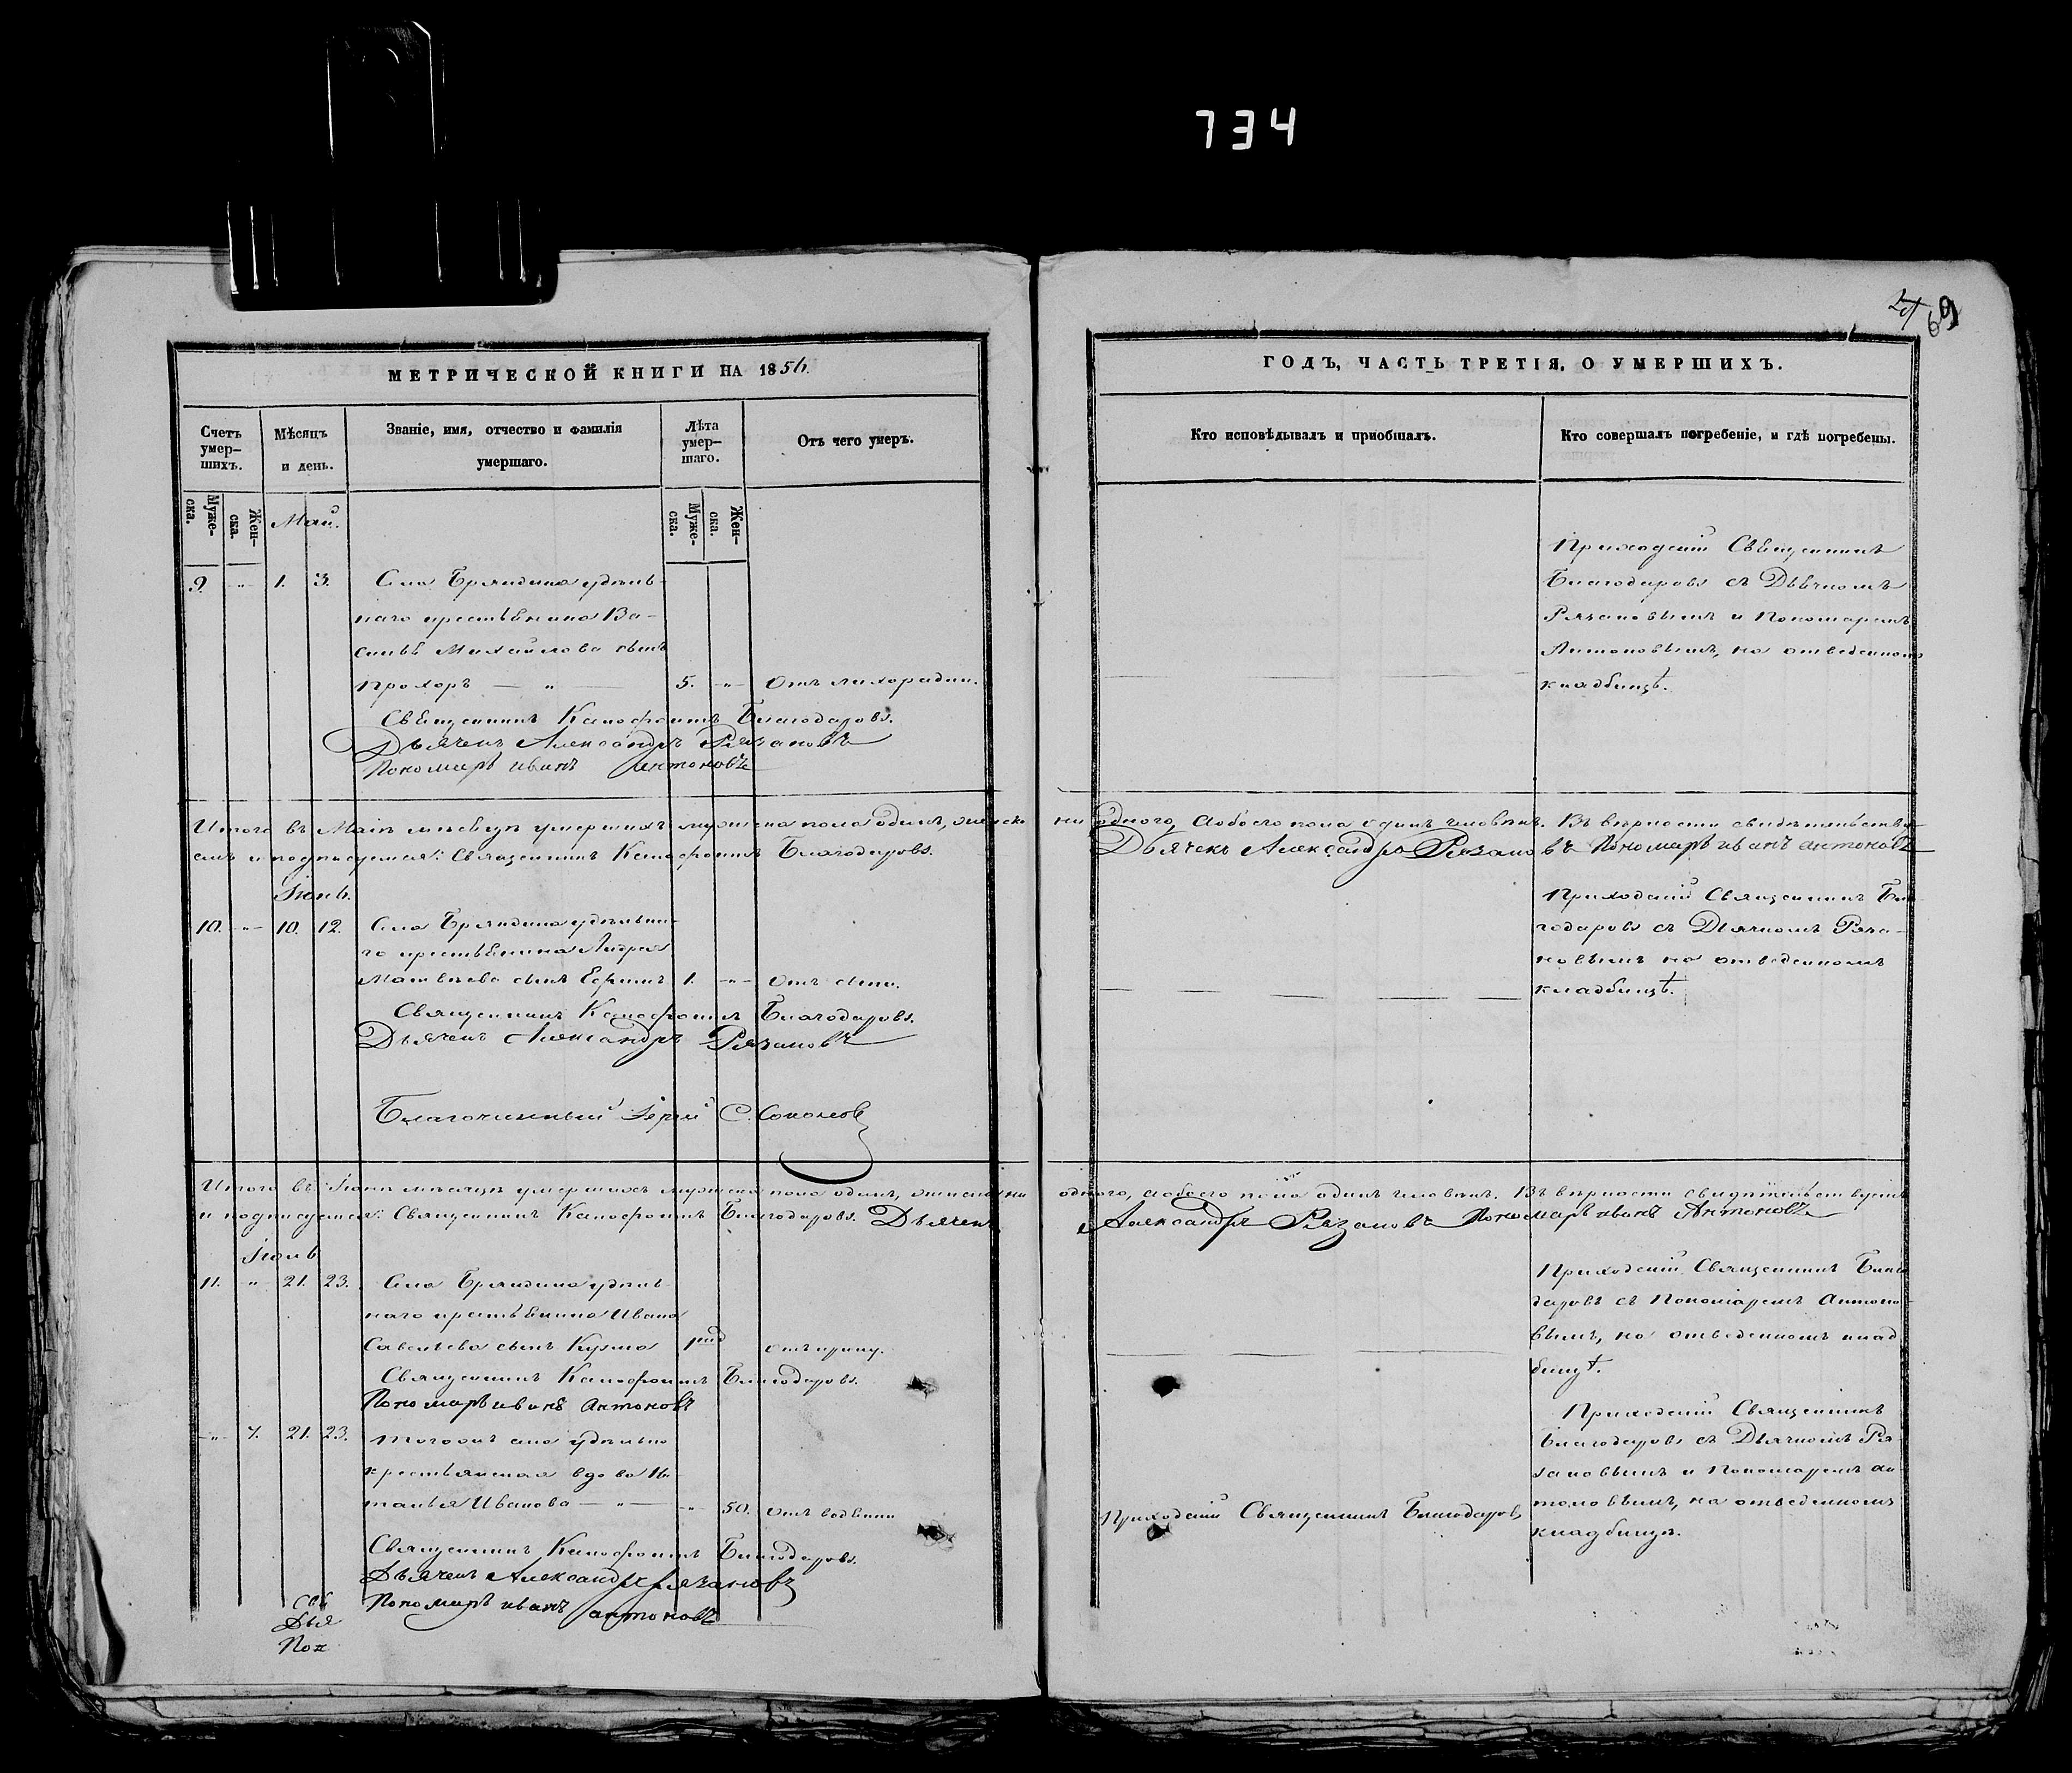 734
69
МЕТРИЧЕСКОЙ КНИГИ НА 1856.
ГОДЪ, ЧАСТЬ ТРЕТІЯ, О УМЕРШИХЪ.
Счетъ умер-шихъ.
Мѣсяцъ и день.
Званіе, имя, отчество и фамилія умершаго.
Лѣта умер-шаго.
Отъ чего умеръ.
Кто исповѣдывалъ и пріобщалъ.
Кто совершалъ погребеніе, и гдѣ погребены.
Муже-ска.
Жен-ска.
Муже-ска.
Жен-ска.
Май.
9. -"- 1. 3. Села Бряндина удѣль-
наго крестьянина Ва-
силья Михайлова сынъ
Прохоръ — " — 5. -"- Отъ лихорадки.
Священникъ Ксенофонтъ Благодаровъ.
Дьячекъ Александръ Рязановъ
Пономарь иванъ антоновъ
Приходскій Священникъ
Благодаровъ съ Дьячкомъ
Рязановымъ и Пономаремъ
Антоновымъ, на отведенномъ
кладбищѣ.
Итого въ Маѣ мѣсяцѣ умершихъ мужеска пола одинъ, женска ни одного, а обоего пола одинъ человѣкъ. Въ вѣрности свидѣтельству-
емъ и подписуемся: Священникъ Ксенофонтъ Благодаровъ. Дьячекъ Александръ Рязановъ Пономарь иванъ антоновъ
Іюнь.
10. -"- 10. 12. Села Бряндина удѣльна-
го крестьянина Андрея
Матвѣева сынъ Ефимъ 1. -"- Отъ оспы.
Священникъ Ксенофонтъ Благодаровъ.
Дьячекъ Александръ Рязановъ
Приходскій Священникъ Бла-
годаровъ съ Дьячкомъ Ряза-
новымъ на отведенномъ
кладбищѣ.
Благочинный Іерей С. Соколовъ
Итого въ Іюнѣ мѣсяцѣ умершихъ мужеска пола одинъ, женска ни одного, а обоего пола одинъ человѣкъ. Въ вѣрности свидѣтельствуемъ
и подписуемся: Священникъ Ксенофонтъ Благодаровъ. Дьячекъ Александръ Рязановъ Пономарь иванъ Антоновъ
Іюль
11. -"- 21. 23. Села Бряндина удѣль-
наго крестьянина Ивана
Савельева сынъ Кузма 1 отъ крику.
Священникъ Ксенофонтъ Благодаровъ.
Пономарь иванъ антоновъ
Приходскій Священникъ Благо-
даровъ съ Пономаремъ Антоно-
вымъ, на отведенномъ клад-
бищѣ.
-"- 7. 21. 23. Тогожъ села удѣльно
крестьянская вдова На-
талья Иванова — " — -"- 50. Отъ водяни
Священникъ Ксенофонтъ Благодаровъ.
Дьячекъ Александръ Рязановъ
Пономарь иванъ антоновъ
Приходскій Священникъ Благодаровъ
Приходскій Священникъ
Благодаровъ съ Дьячкомъ Ря-
зановымъ и Пономаремъ ан-
тоновымъ, на отведенномъ
кладбищѣ.
Дья
Пон